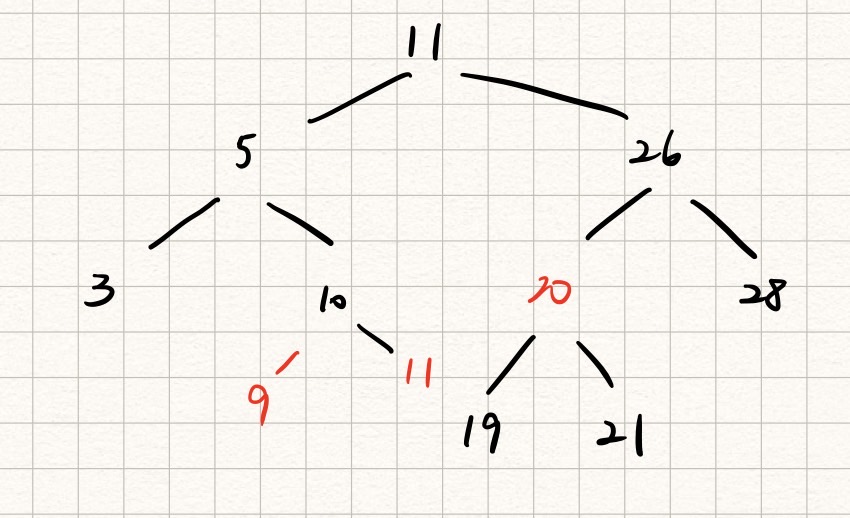 11
5 26
3 10 20 28
9 11 19 21